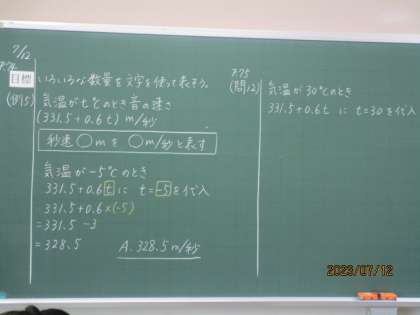 7/12
P.74
目標 いろいろな数量を文字を使って表そう。
(例5) 気温がt℃のとき音の速さ
(331.5+0.6t) m/秒
秒速○mを ○m/秒と表す
気温が-5℃のとき
331.5+0.6tに t=-5を代入
331.5+0.6×(-5)
=331.5-3
=328.5
A. 328.5m/秒
P.75
(問12) 気温が30℃のとき
331.5+0.6t に t=30を代入
2023/07/12